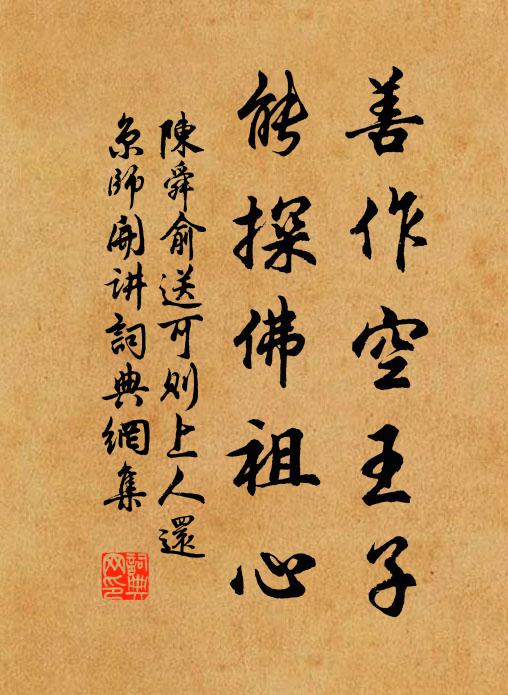 善作空王子
能探佛祖心
陳舜俞送可則上人還
京師開講詞典網集
詞典
网印